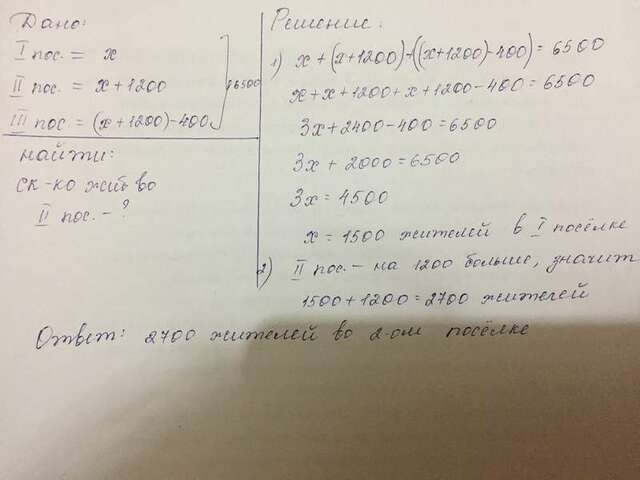 Дано:
I пос. = x
II пос. = x + 1200
III пос = (x+1200)-400
6500
найти:
ск-ко жит. во
II пос. - ?
Решение:
1) x + (x+1200)+((x+1200)-400) = 6500
x + x + 1200 + x + 1200 - 400 = 6500
3x + 2400 - 400 = 6500
3x + 2000 = 6500
3x = 4500
x = 1500 жителей в I посёлке
2) II пос. - на 1200 больше, значит
1500 + 1200 = 2700 жителей
Ответ: 2700 жителей во 2-ом посёлке